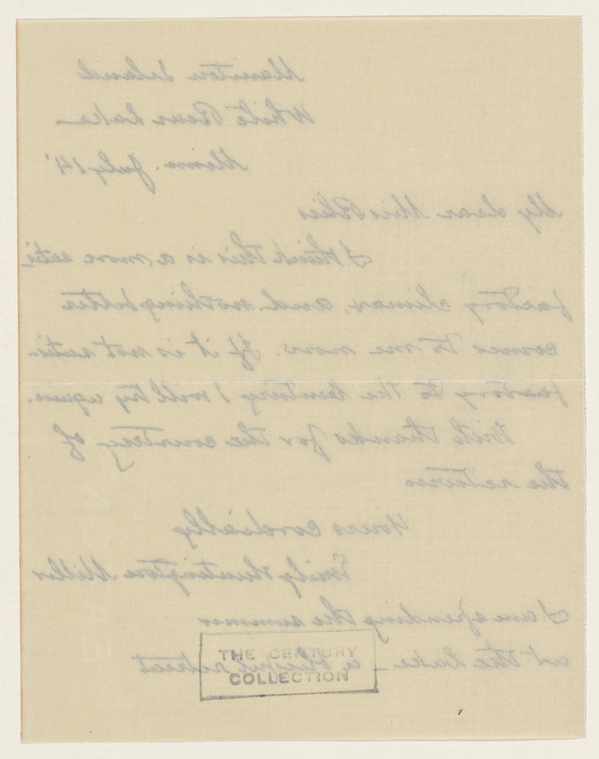 Manitou Island
White Bear Lake
Minn. July 14'
My dear Miss
I think this is a more satis-
factory climax, and nothing better
comes to me now. If it is not satis-
factory to the Century I will try again.
With thanks for the courtesy of
the return
Yours cordially
Emily Huntington Miller
I am spending the summer
at the Lake - a retreat
THE CENTURY
COLLECTION